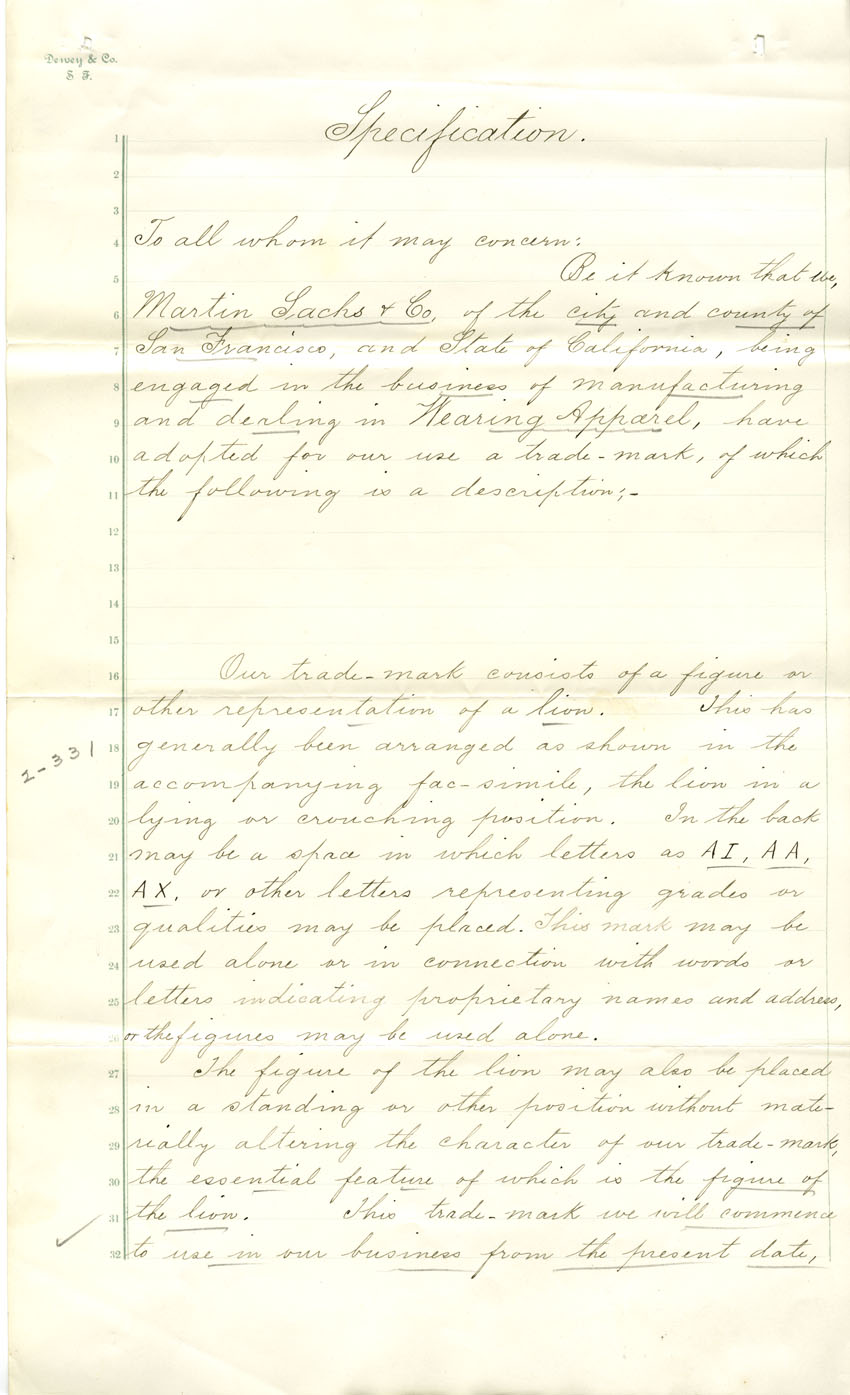 Dewey & Co.
S F.
Specification.
1
2
3
4 To all whom it may concern:
5 Be it known that we,
6 Martin Sachs & Co, of the city and county of
7 San Francisco, and State of California, being
8 engaged in the business of manufacturing
9 and dealing in Wearing Apparel, have
10 adopted for our use a trade-mark, of which
11 the following is a description;-
12
13
14
15
16 Our trade-mark consists of a figure or
17 other representation of a lion. This has
18 generally been arranged as shown in the
19 accompanying fac-simile, the lion in a
20 lying or crouching position. In the back
21 may be a space in which letters as AI, AA,
22 AX, or other letters representing grades or
23 qualities may be placed. This mark may be
24 used alone or in connection with words or
25 letters indicating proprietary names and address,
26 or the figures may be used alone.
27 The figure of the lion may also be placed
28 in a standing or other position without mate-
29 rially altering the character of our trade-mark,
30 the essential feature of which is the figure of
31 the lion. This trade-mark we will commence
32 to use in our business from the present date,
2-331